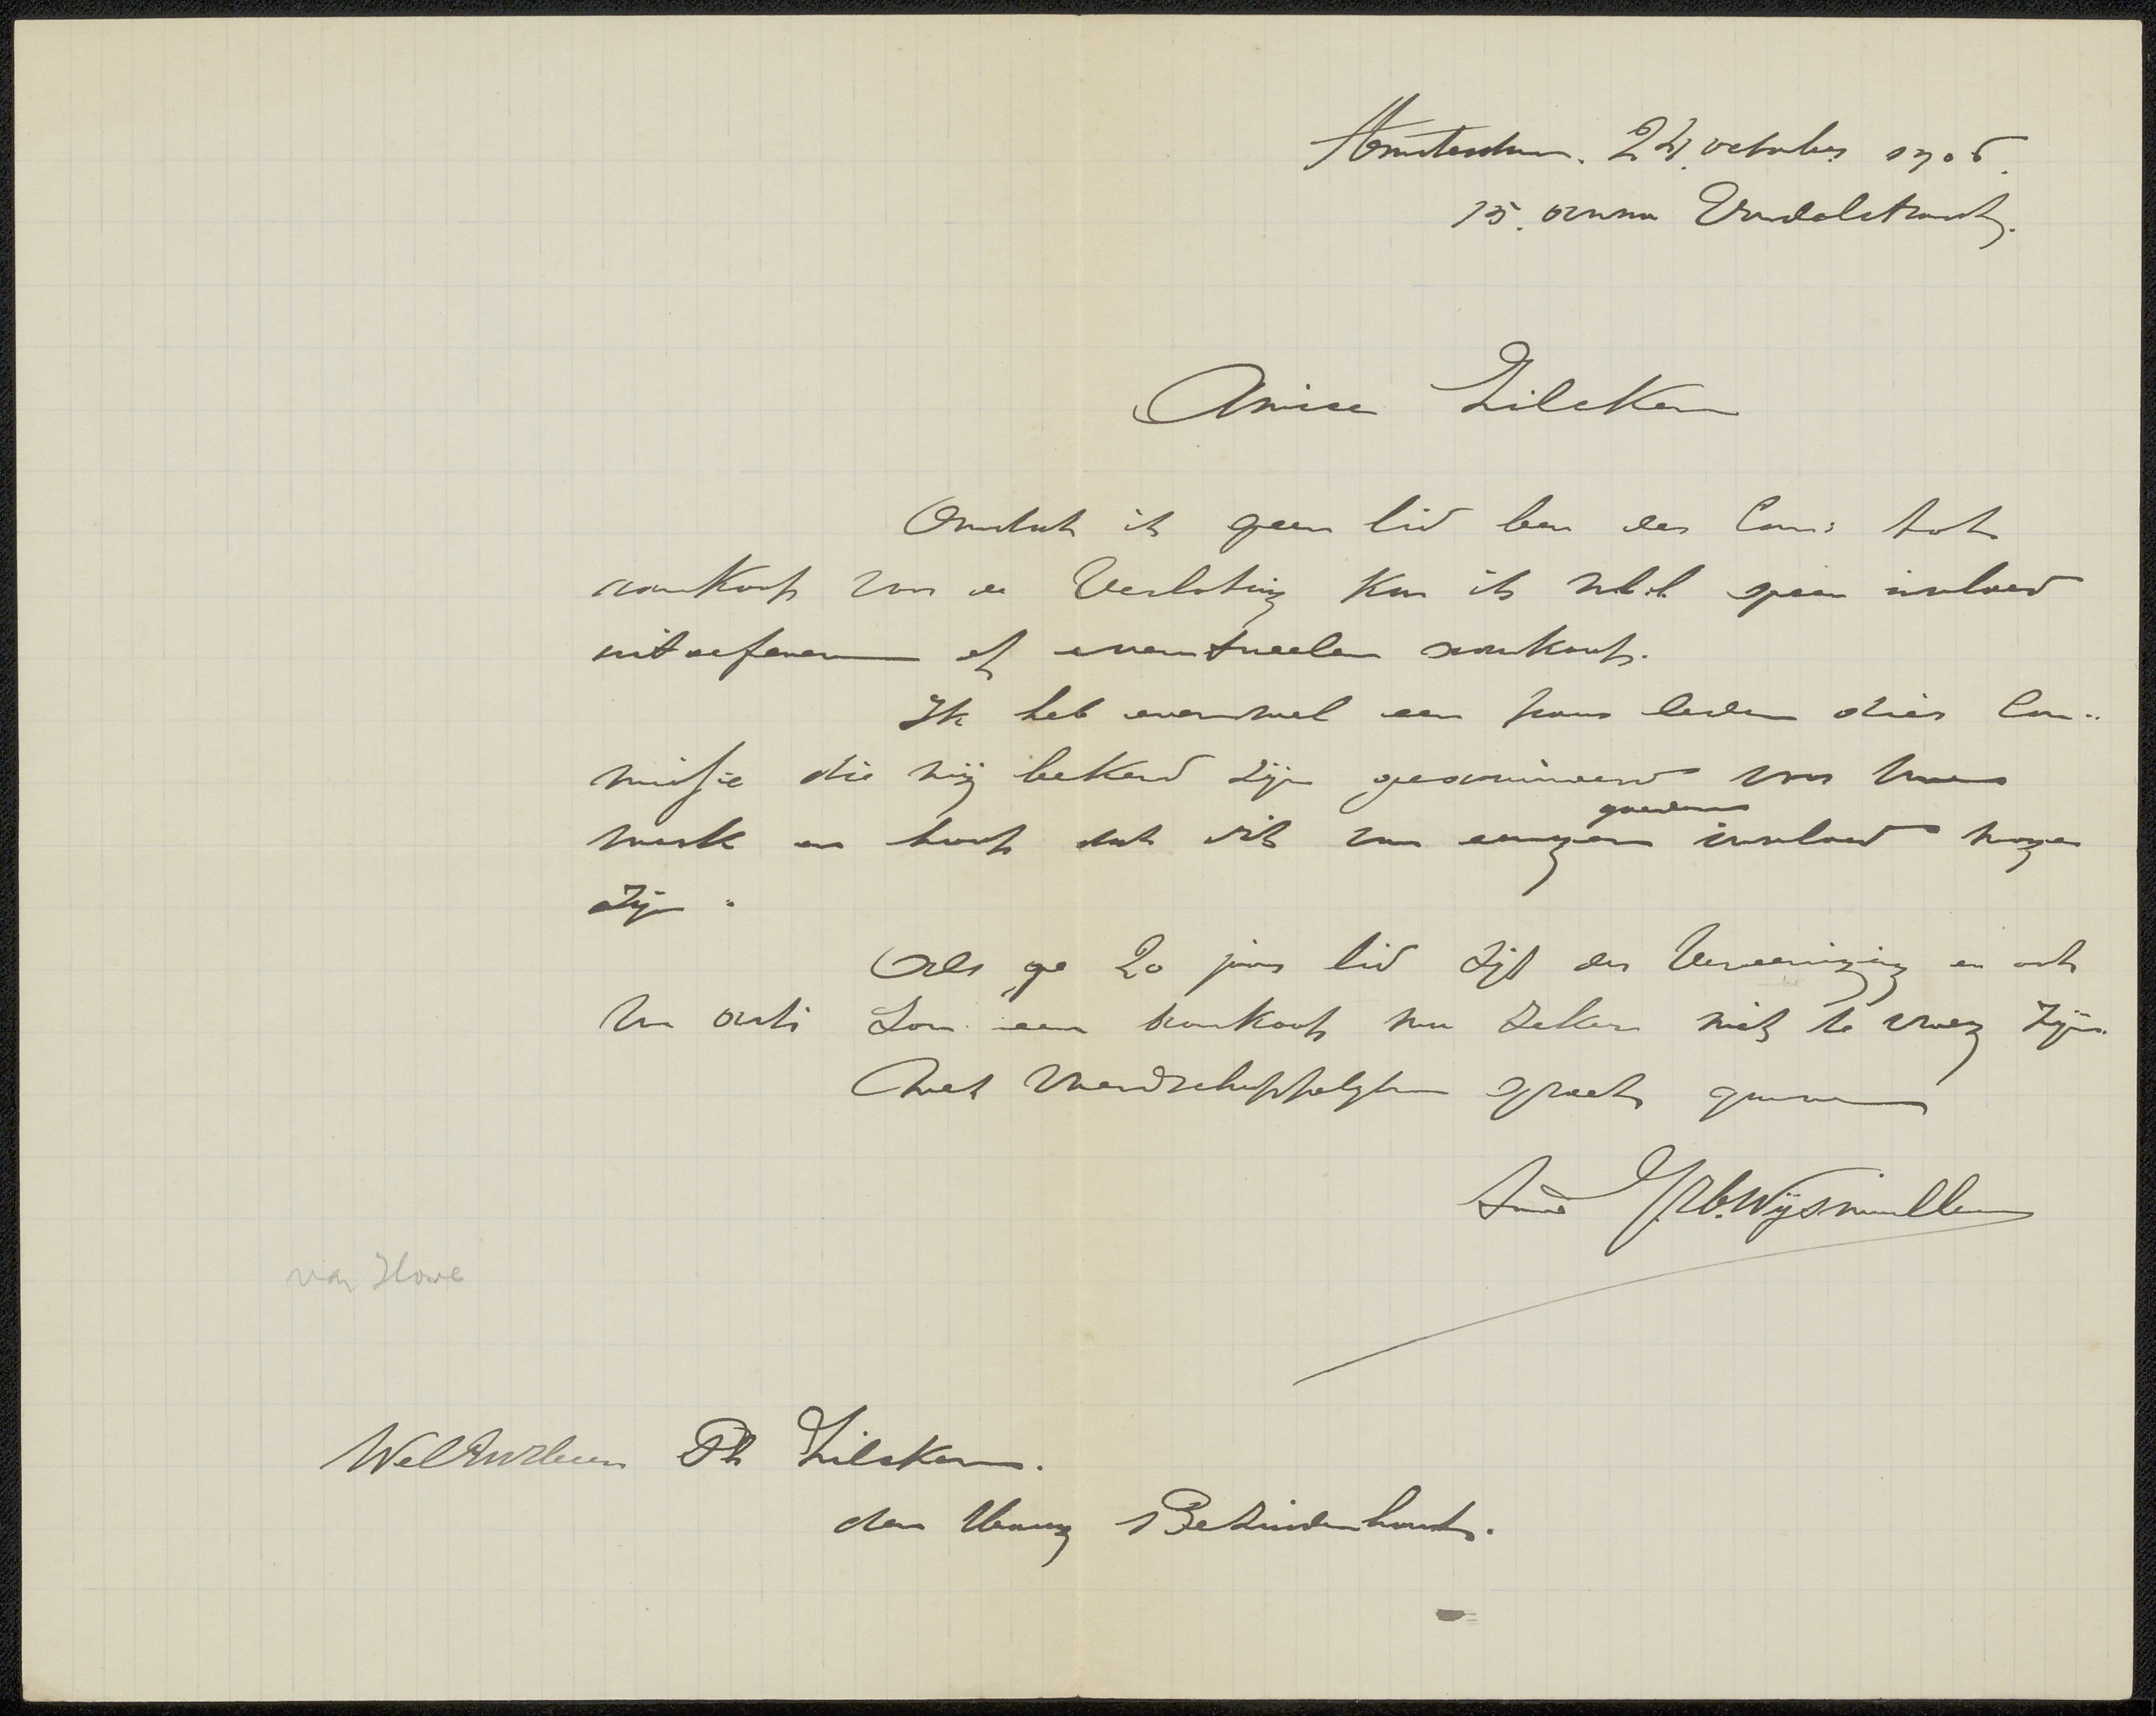 Amsterdam. 24 october 1905.
15. anna Vondelstraat.
Amice Zilcken
Omdat ik geen lid ben der Com: tot
aankoop voor de Verloting kan ik geen invloed
uitoefenen of eventueelen aankoop.
Ik heb evenwel een paar leden dier Com-
missie die mij bekend zijn geanimeerd voor Uwe
werk en hoop dat dit van eenigen goeden invloed moge
zijn.
Als ge 20 jaar lid zijt der Vereeniging en ook
van arti zou een aankoop nu zeker niet te vroeg zijn.
Met vriendschappelyken groet gaarne
H. M. Wijsmuller
WelEdelheer Ph Zilcken.
den Haag Bezuidenhout.